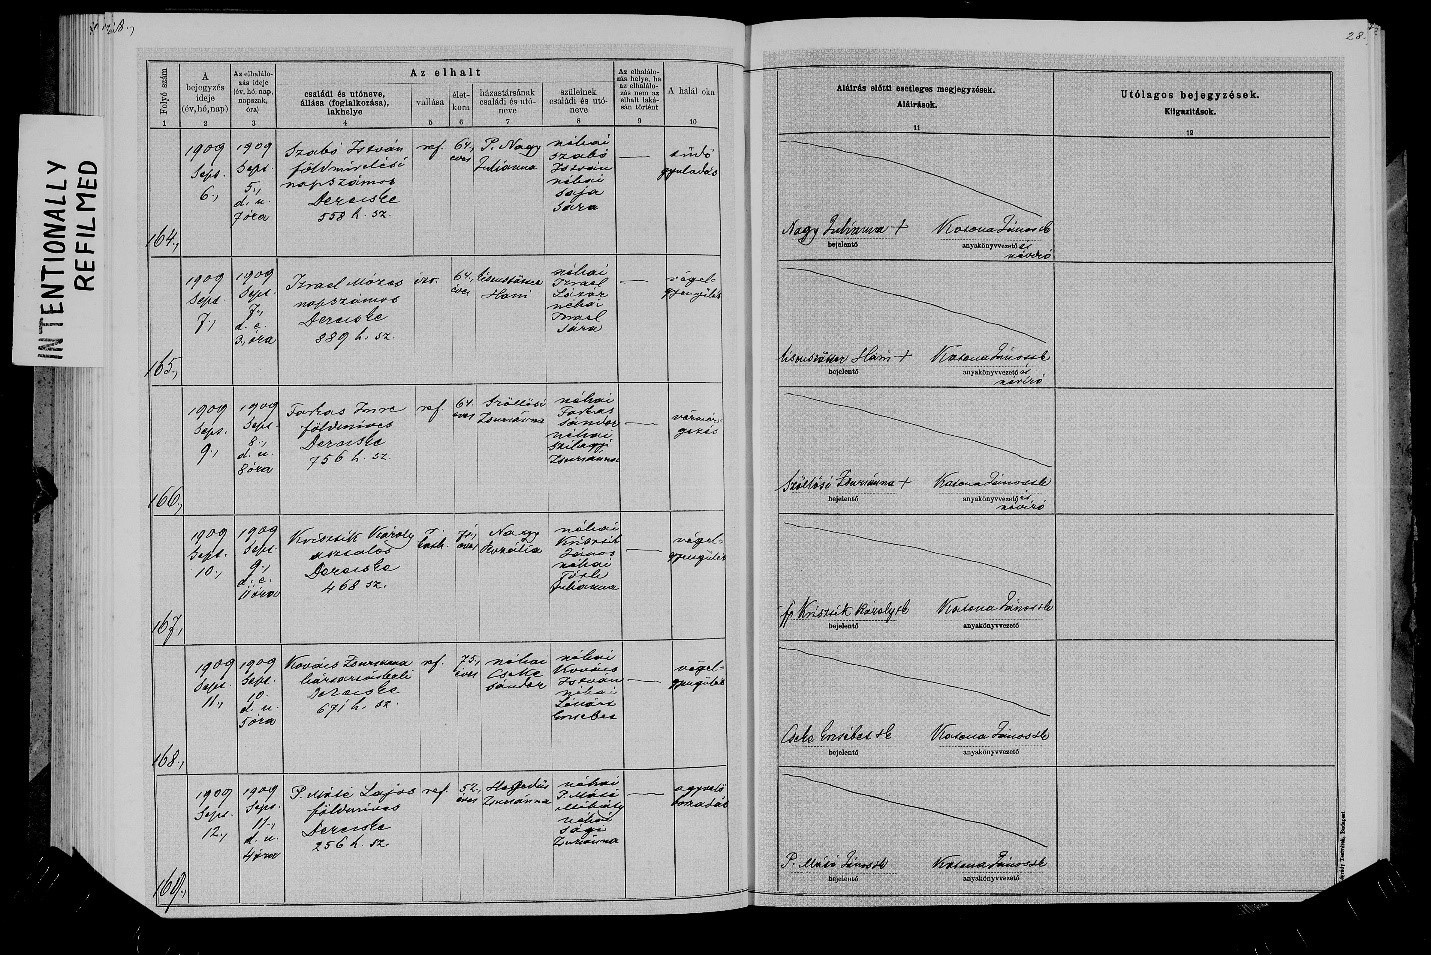 28.
INTENTIONALLY
REFILMED
Folyó szám
A bejegyzés ideje (év, hó, nap)
Az elhalálozás ideje (év, hó, nap, napszak, óra)
Az elhalt
családi és utóneve, állása (foglalkozása), lakhelye
vallása
életkora
házastársának családi és utóneve
szüleinek családi és utóneve
Az elhalálozás helye, ha az elhalálozás nem az elhalt lakásán történt
A halál oka
Aláírás előtti esetleges megjegyzések.
Aláírások.
Utólagos bejegyzések.
Kiigazítások.
1 2 3 4 5 6 7 8 9 10 11 12
164.,
1909 Sept. 6.,
1909 Sept. 5., d. u. 7 óra
Szabó István
földmivelési
napszámos
Derecske
558 h. sz.
ref.
64., éves
P. Nagy Julianna
néhai Szabó István néhai Sára
tüdő gyuladás
Nagy Julianna +
bejelentő
Katona János sk
anyakönyvvezető és
névíró
165.,
1909 Sept. 7.,
1909 Sept. 7., d. e. 3, óra
Izrael Mózes
napszámos
Derecske
889 h. sz.
izr.
64., éves
Hani
néhai Izrael Lázár néhai Izrael Sára
végelgyengülés
Hani +
bejelentő
Katona János sk
anyakönyvvezető és
névíró
166.,
1909 Sept. 9.,
1909 Sept. 8., d. u. 8 óra
Farkas Imre
földmives
Derecske
756 h. sz.
ref.
64. éves
Szöllősi Zsuzsánna
néhai Farkas Sándor néhai Szilágyi Zsuzsánna
Szöllősi Zsuzsánna +
bejelentő
Katona János sk
anyakönyvvezető és
névíró
167.,
1909 Sept. 10.,
1909 Sept. 9., d. e. 11 óra
Kriscsik Károly
asztalos
Derecske
468 sz.
Nagy Rozália
néhai Kriscsik János néhai Tóth Julianna
végelgyengülés
ifj. Kriscsik Károly sk
bejelentő
Katona János sk
anyakönyvvezető
168.,
1909 Sept. 11.,
1909 Sept. 10. d. u. 5 óra
Kovács Zsuzsánna
háztartásbeli
Derecske
671 h. sz.
ref.
75., éves
néhai Cseke Sándor
néhai Kovács István néhai Erzsébet
végelgyengülés
Cseke Erzsébet sk
bejelentő
Katona János sk
anyakönyvvezető
169.,
1909 Sept. 12.,
1909 Sept. 11., d. u. 4 óra
P. Máté Lajos
földmives
Derecske
256 h. sz.
ref
52., éves
Hegedüs Zsuzsánna
néhai P. Máté Mihály néhai Sági Zsuzsánna
P. Máté János sk
bejelentő
Katona János sk
anyakönyvvezető